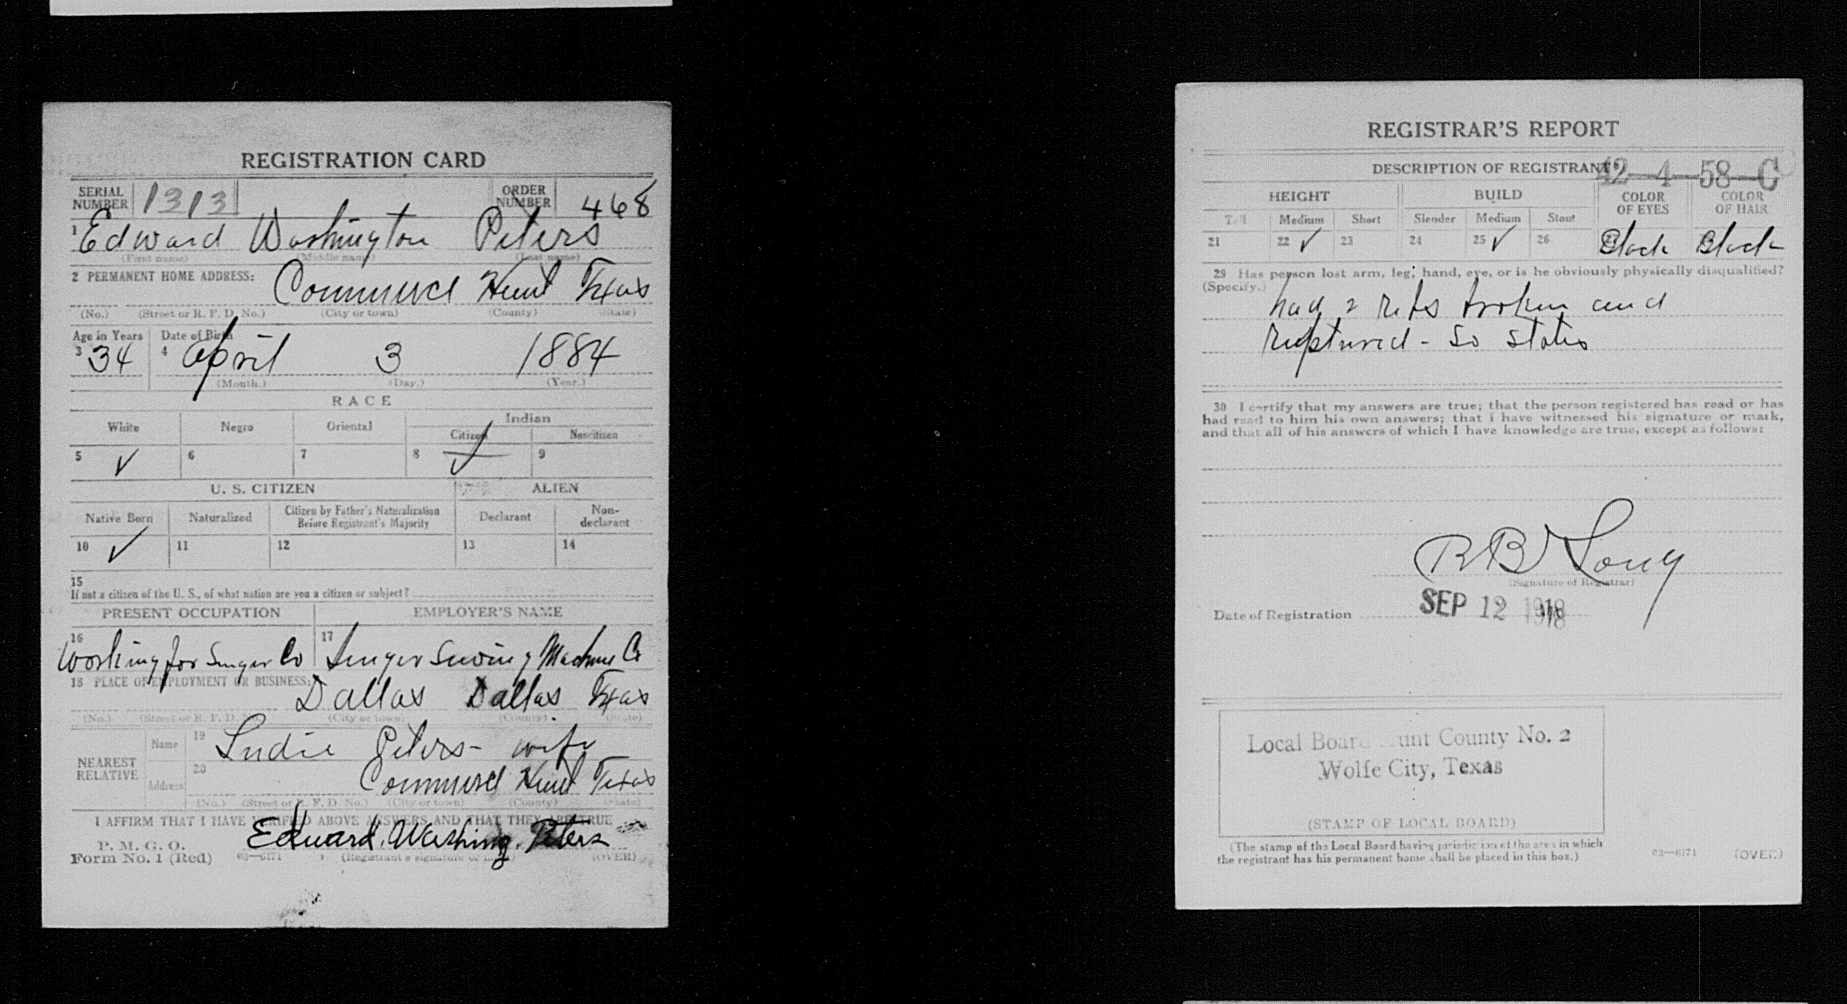 REGISTRATION CARD
SERIAL NUMBER 1313 ORDER NUMBER 468
1 Edward Washington Peters
(First name) (Middle name) (Last name)
2 PERMANENT HOME ADDRESS: Commerce Hunt Texas
(No.) (Street or R. F. D. No.) (City or town) (County) (State)
Age in Years Date of Birth
3 34 4 April 3 1884
(Month.) (Day.) (Year.)
RACE
White Negro Oriental Indian
Citizen Noncitizen
5 ✓ 6 7 8 ✓ 9
U. S. CITIZEN ALIEN
Native Born Naturalized Citizen by Father's Naturalization Before Registrant's Majority Declarant Non-declarant
10 ✓ 11 12 13 14
15
If not a citizen of the U. S., of what nation are you a citizen or subject?
PRESENT OCCUPATION EMPLOYER'S NAME
16 Working for Singer Co 17 Singer Sewing Machine Co
18 PLACE OF EMPLOYMENT OR BUSINESS: Dallas Dallas Texas
(No.) (Street or R. F. D. (City or town) (County) (State)
NEAREST RELATIVE
Name 19 Peters - wife
Address 20 Commerce Hunt Texas
(No.) (Street or R. F. D. No.) (City or town) (County) (State)
I AFFIRM THAT I HAVE VERIFIED ABOVE ANSWERS AND THAT THEY ARE TRUE
P. M. G. O.
Form No. 1 (Red) 03—6171 Edward. Washing. Peters
(Registrant's signature or mark) (OVER)
REGISTRAR'S REPORT
DESCRIPTION OF REGISTRANT 42—4—58—C
HEIGHT BUILD COLOR OF EYES COLOR OF HAIR
Tall Medium Short Slender Medium Stout
21 22 ✓ 23 24 25 ✓ 26 27 Black Black
29 Has person lost arm, leg, hand, eye, or is he obviously physically disqualified?
(Specify.) had 2 ribs broken and
ruptured - so states
30 I certify that my answers are true; that the person registered has read or has
had read to him his own answers; that I have witnessed his signature or mark,
and that all of his answers of which I have knowledge are true, except as follows:
R B Long
(Signature of Registrar)
Date of Registration SEP 12 1918
Local Board Hunt County No. 2
Wolfe City, Texas
(STAMP OF LOCAL BOARD)
(The stamp of the Local Board having jurisdiction of the area in which
the registrant has his permanent home shall be placed in this box.)
03—6171 (OVER)